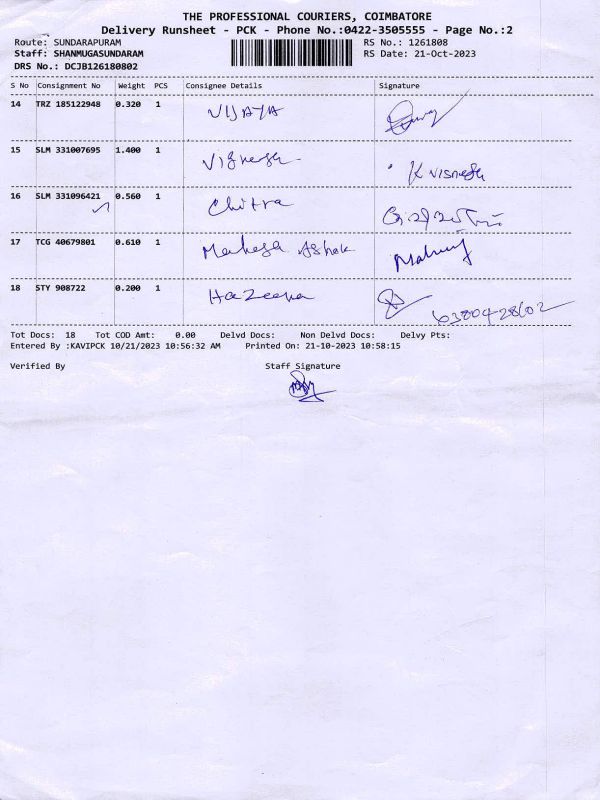 THE PROFESSIONAL COURIERS, COIMBATORE
Delivery Runsheet - PCK - Phone No.:0422-3505555 - Page No.:2
Route: SUNDARAPURAM RS No.: 1261808
Staff: SHANMUGASUNDARAM RS Date: 21-Oct-2023
DRS No.: DCJB126180802
S No Consignment No Weight PCS Consignee Details Signature
14 TRZ 185122948 0.320 1 VIJAYA
15 SLM 331007695 1.400 1 Vignesh K Visnesh
16 SLM 331096421 0.560 1 Chitra
17 TCG 40679801 0.610 1 Ashok
18 STY 908722 0.200 1 Hazeena
Tot Docs: 18 Tot COD Amt: 0.00 Delvd Docs: Non Delvd Docs: Delvy Pts:
Entered By :KAVIPCK 10/21/2023 10:56:32 AM Printed On: 21-10-2023 10:58:15
Verified By Staff Signature